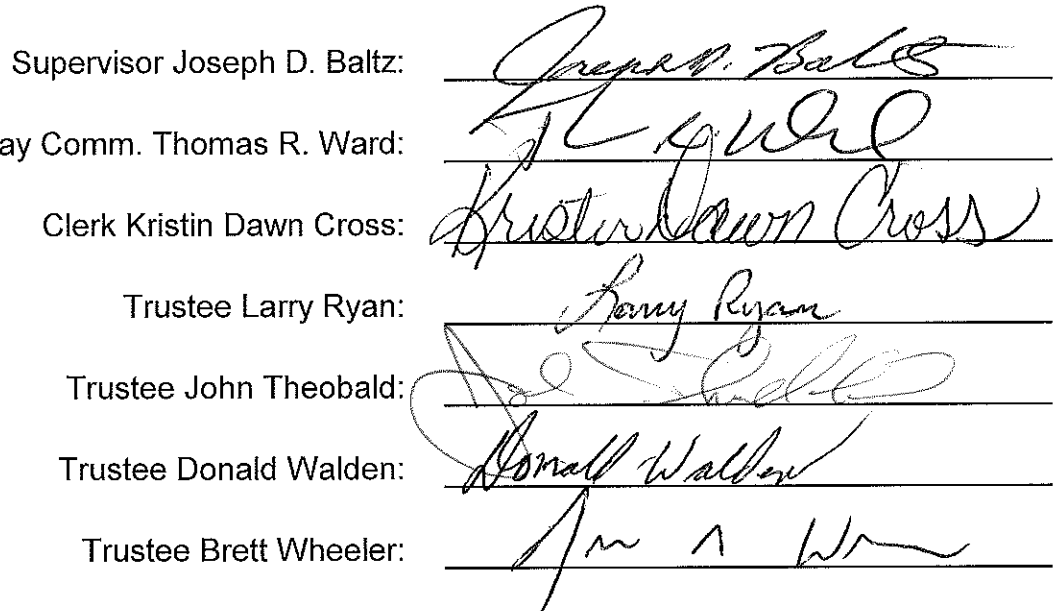 Supervisor Joseph D. Baltz: Joseph D. Baltz
ay Comm. Thomas R. Ward:
Clerk Kristin Dawn Cross: Kristin Dawn Cross
Trustee Larry Ryan: Larry Ryan
Trustee John Theobald:
Trustee Donald Walden: Donald Walden
Trustee Brett Wheeler: